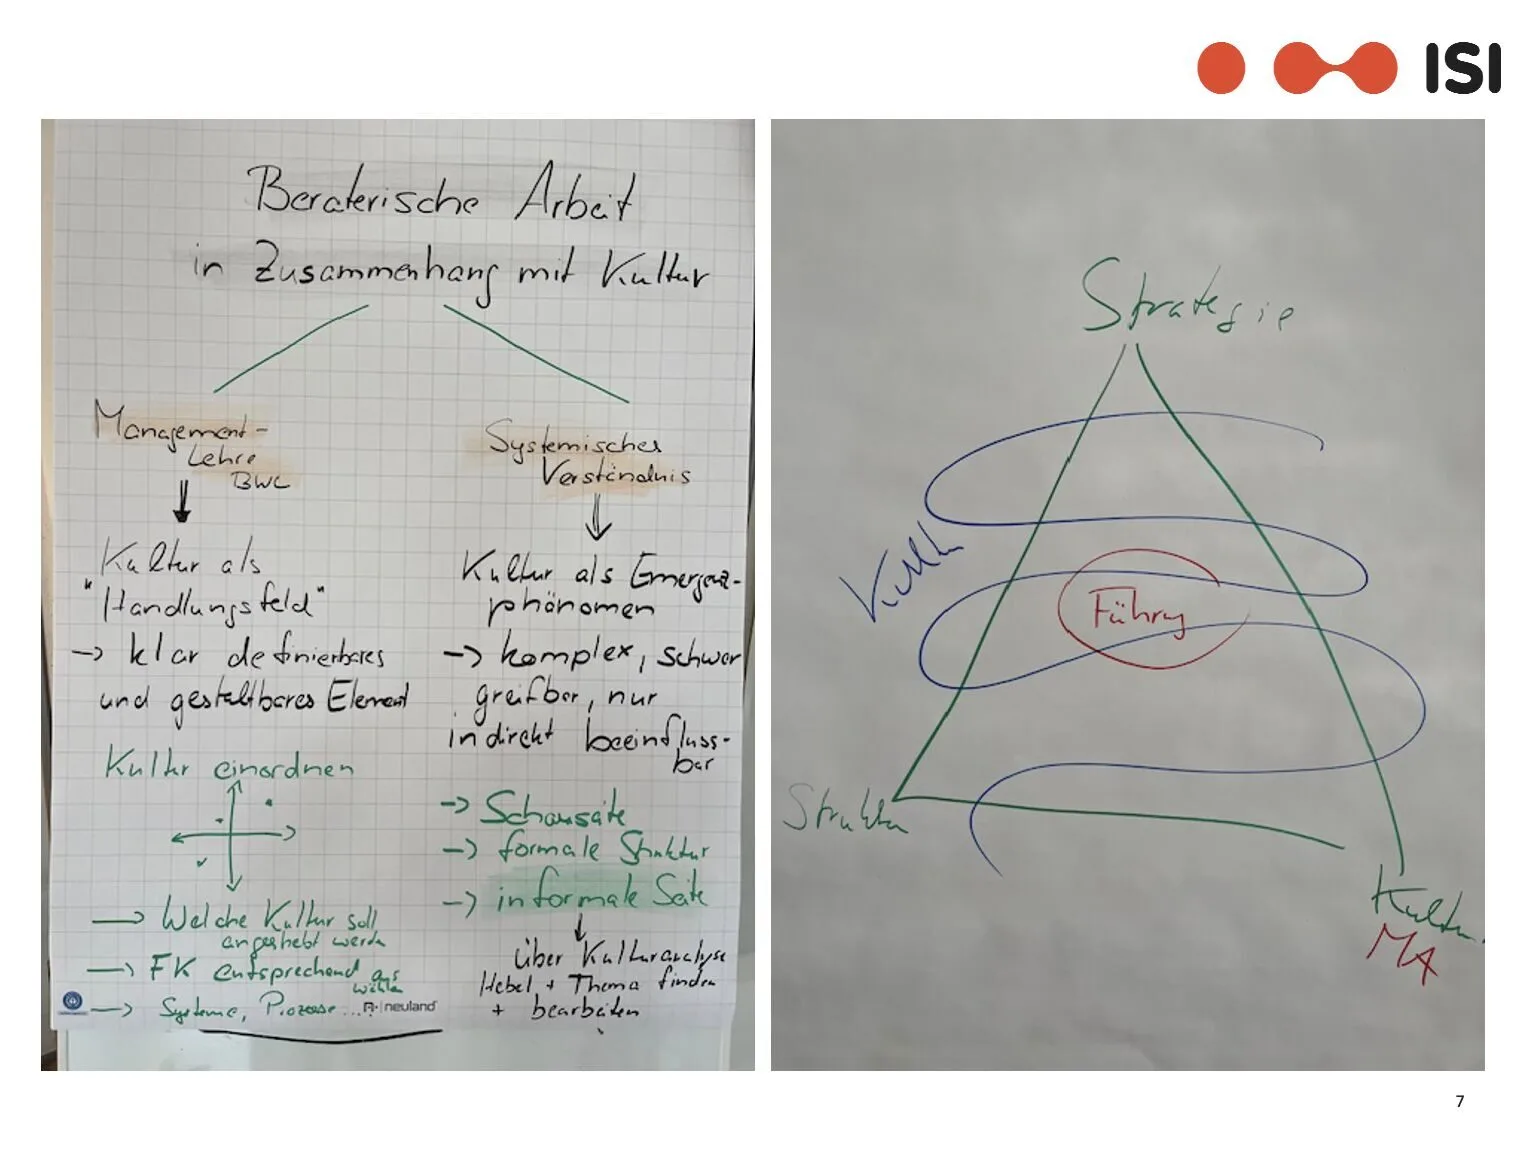 ISI
Beraterische Arbeit
in Zusammenhang mit Kultur
Management-
Lehre
BWL
Kultur als
"Handlungsfeld"
-> klar definierbares
und gestaltbares Element
Kultur einordnen
-> Welche Kultur soll
angestrebt werden
-> FK entsprechend aus
wählen
-> Systeme, Prozesse...
neuland
Systemisches
Verständnis
Kultur als Emergenz-
phänomen
-> komplex, schwer
greifbar, nur
indirekt beeinfluss-
bar
-> Schauseite
-> formale Struktur
-> informale Seite
über Kulturanalyse
Hebel + Thema finden
+ bearbeiten
Strategie
Kultur
Führung
Struktur
Kultur
MA
7